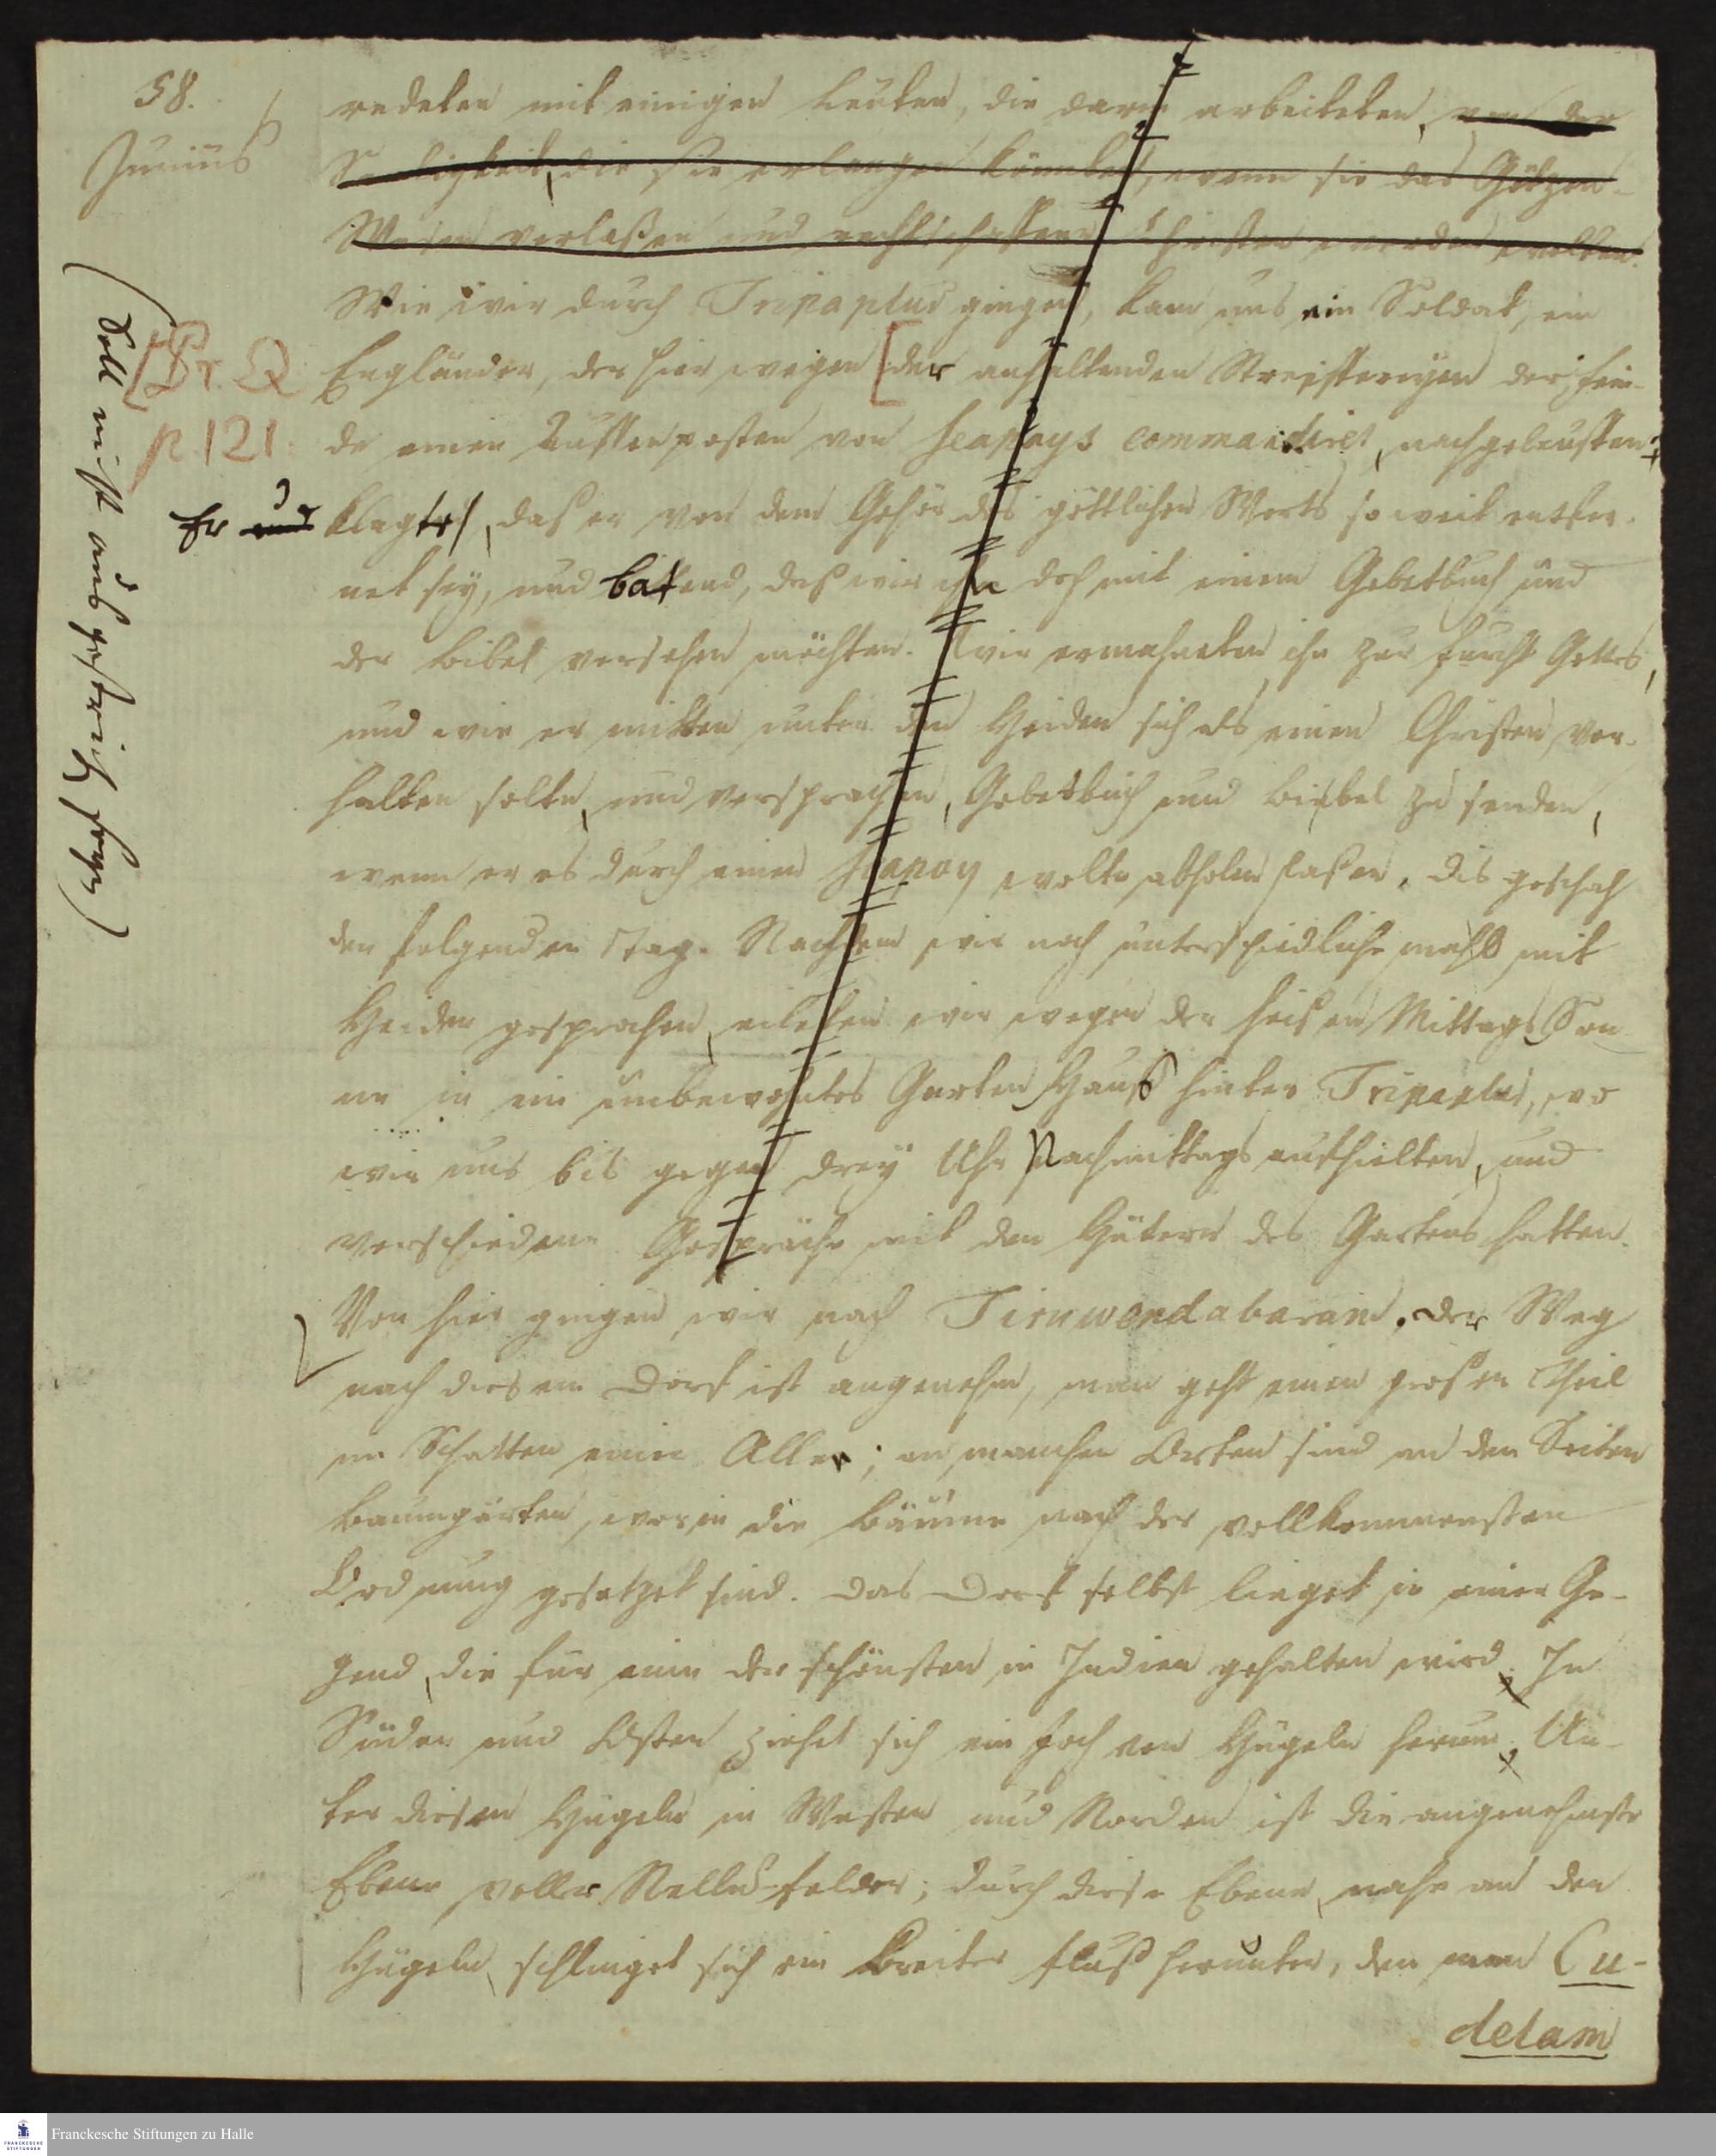 58.
Junius
redeten mit einigen Leuten, die darin arbeiteten, von der
Seeligkeit, die sie erlangen könten, wenn sie das Götzen-
Wesen verlaßen und rechtschaffene Christen werden wolten.
Wie wir durch Tripaplur gingen, kam uns ein Soldat, ein
Engländer, der hier wegen [der anhaltenden Streiffereyen der Fein-
de einen Aussenposten von Seapoys commandiret, nachgelauffen
Er und klagte, daß er von dem Gehör des göttlichen Worts so weit entfer-
net sey, und bat, daß wir ihn doch mit einem Gebetbuch und
der Bibel versehen möchten. Wir ermahneten ihn zur Furcht Gottes,
und wie er mitten unter den Heiden sich als einen Christen ver-
halten solte, und versprachen, Gebetbuch und Biebel zu senden,
wenn er es durch einen Seapoy wolte abholen laßen, dis geschah
den folgenden Tag. Nachdem wir noch unterschiedliche mahl mit
Heiden gesprochen, eileten wir wegen der heisen Mittags Son
ne in ein unbewohntes Garten Hauß hinter Tripaplur, wo
wir uns bis gegen drey Uhr Nachmittags aufhielten, und
verschiedene Gespräche mit den Hütern des Gartens hatten.
Von hier gingen wir nach Tiruwendabaram. Der Weg
nach diesem Dorf ist angenehm, man geht einen grosen Theil
im Schatten einer Allee; an manchen Orten sind an den Seiten
Baumgärten, worin die Bäume nach der vollkommensten
Ordnung gesetzet sind. Das Dorf selbst lieget in einer Ge-
gend, die für eine der schönsten in Indien gehalten wird. In
Süden und Osten ziehet sich ein Joch von Hügeln herum, Un-
ter diesen Hügeln in Westen und Norden ist die angenehmste
Ebene voller Nellu felder; durch diese Ebene nahe an den
Hügeln, schlinget sich ein breiter Fluß herunter, den man Cu-
delam
[Pr. Q
p. 121.
(Soll nicht ausgestrich seyn)
Franckesche Stiftungen zu Halle